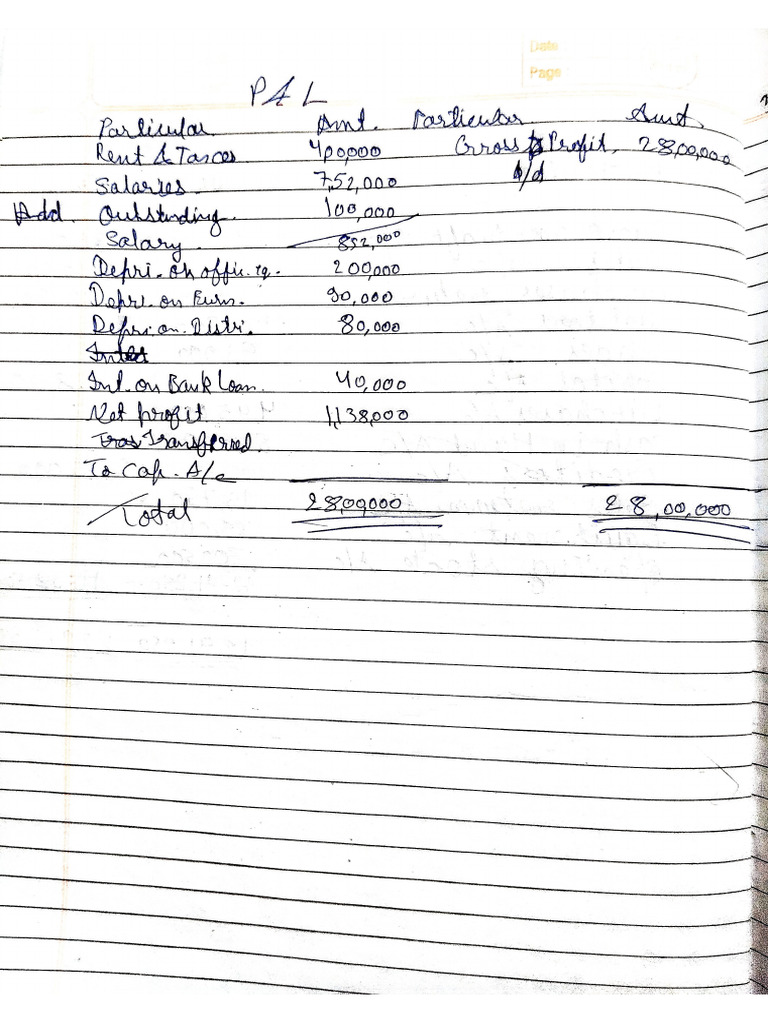 Date
Page
P & L
Particular Amt. Particular Amt.
Rent & Taxes 400,000 Gross Profit 28,00,000
Salaries 7,52,000 b/d
Add. Outstanding 100,000
Salary 852,000
Depri. on offic. eq. 200,000
Depri. on Furn. 90,000
Depri. on Distri. 80,000
Int. on Bank Loan. 40,000
Net profit 1,138,000
Transferred.
To Cap. A/c
Total 28,00000 28,00,000